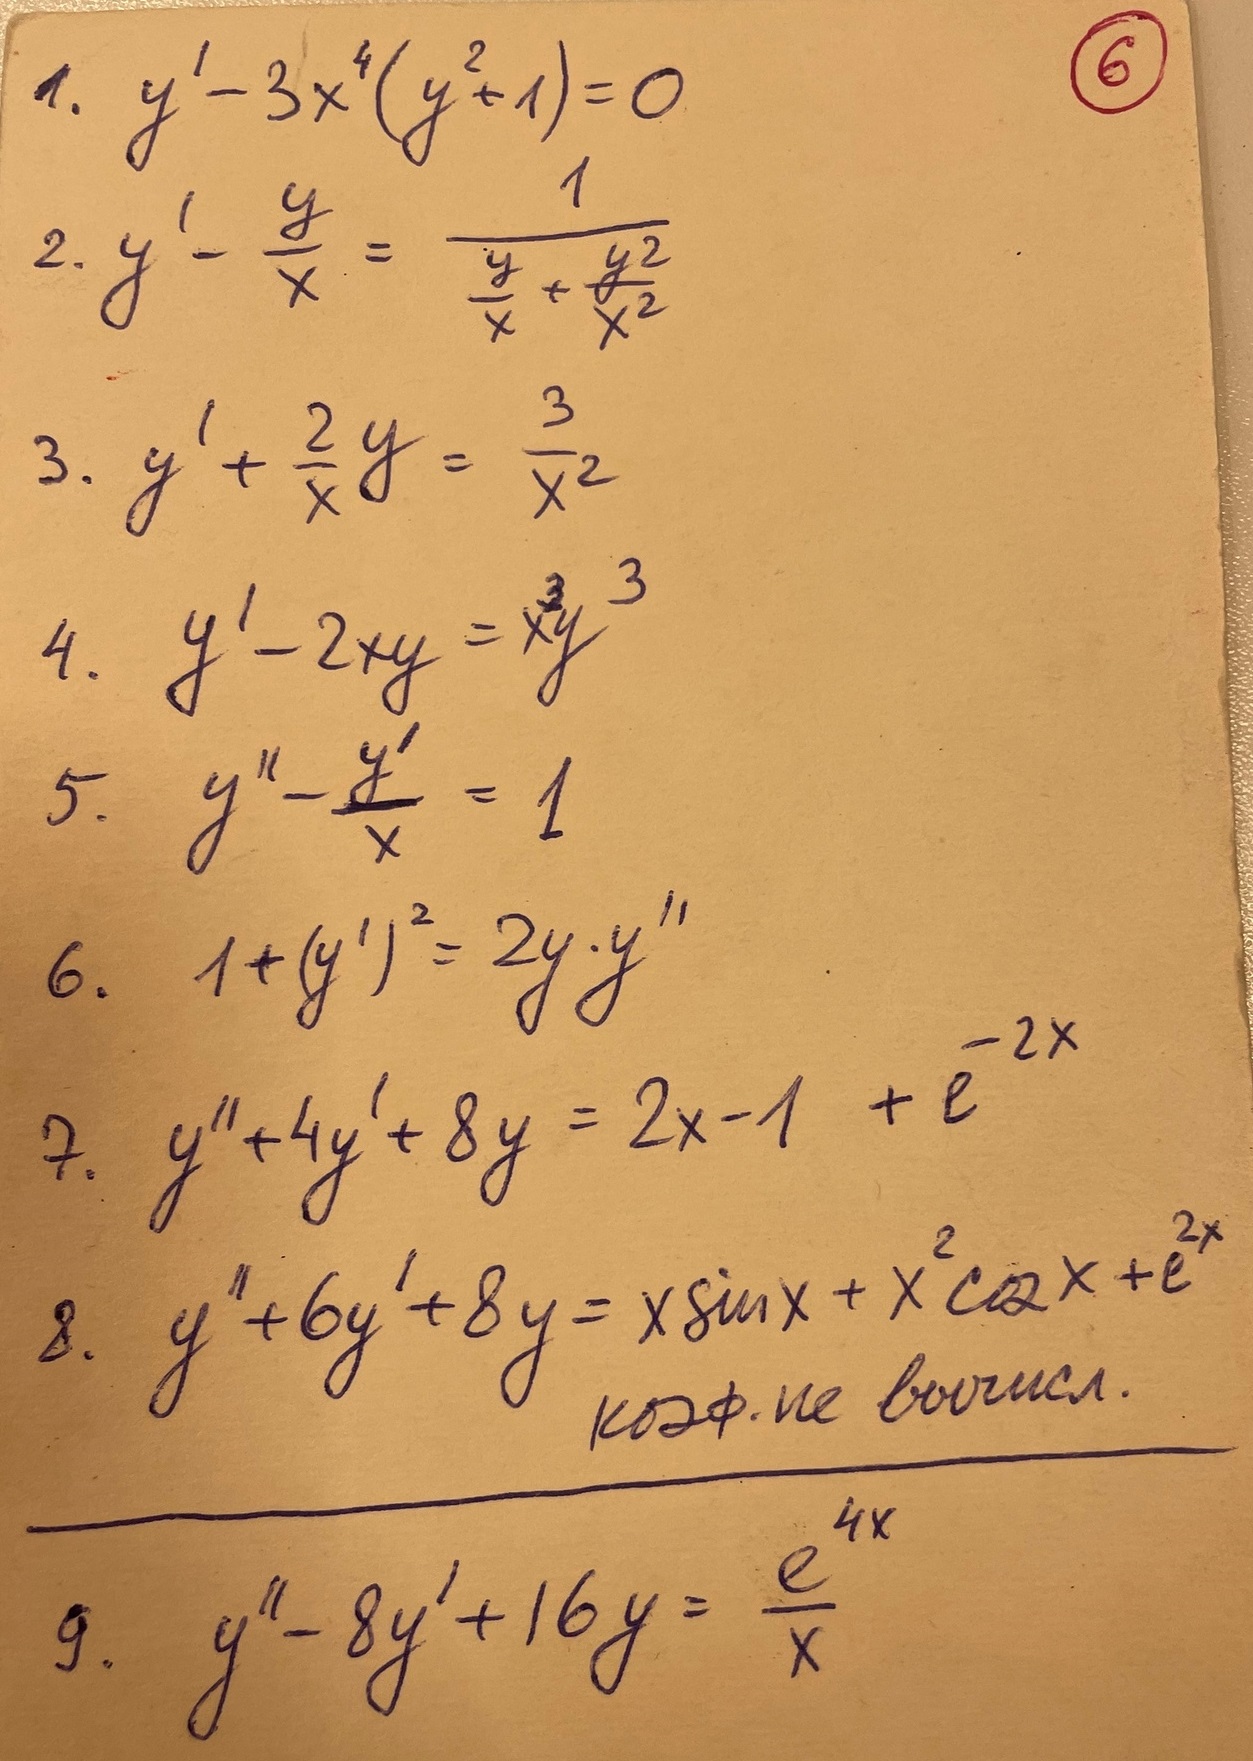 6
1. y' - 3x⁴(y² + 1) = 0
2. y' - y/x = 1/(y/x + y²/x²)
3. y' + 2/x y = 3/x²
4. y' - 2xy = x³y³
5. y'' - y'/x = 1
6. 1 + (y')² = 2y · y''
7. y'' + 4y' + 8y = 2x - 1 + e⁻²ˣ
8. y'' + 6y' + 8y = x sin x + x² cos x + e²ˣ
коэф. не вычисл.
9. y'' - 8y' + 16y = e⁴ˣ/x